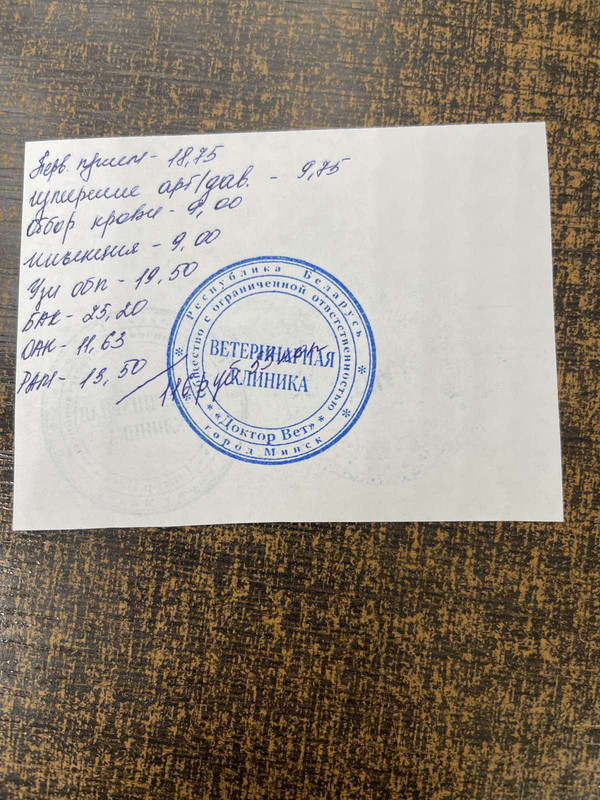 Перв. прием - 18,75
измерение арт/дав. - 9,75
Отбор крови - 9,00
инъекция - 9,00
Узи обп - 19,50
БАК - 25,20
ОАК - 11,63
РАМ - 13,50
116 руб 33 коп
Республика Беларусь
Общество с ограниченной ответственностью
ВЕТЕРИНАРНАЯ
КЛИНИКА
«Доктор Вет»
город Минск